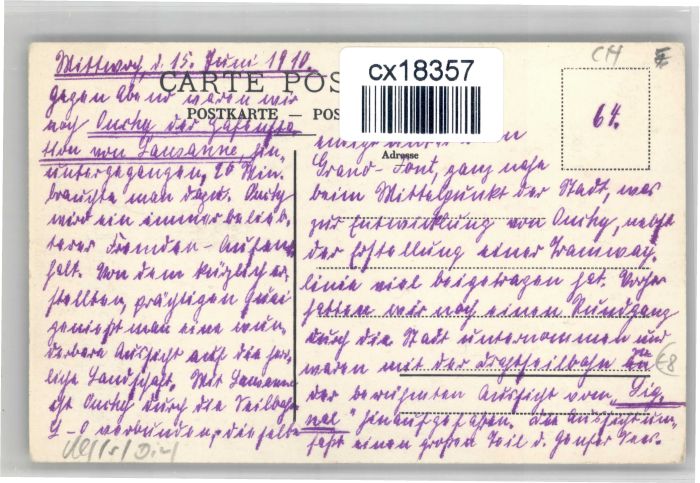 Mittwoch, d. 15. Juni 1910.
CARTE POS
POSTKARTE — POS
cx18357
CH
64.
Adresse
Gegen Abend waren wir
noch Ouchy der Hafensta-
tion von Lausanne hin-
untergegangen, 20 Min.
brauchte man dazu. Ouchy
wird ein immer belieb-
terer Fremden-Aufent-
halt. Von dem kürzlich er-
stellten, prächtigen Quai
genießt man eine wun-
derbare Aussicht auf die herr-
liche Landschaft. Mit Lausanne
ist Ouchy durch die Seilbahn
L-O verbunden, dieselbe
Grand-Pont, ganz nahe
beim Mittelpunkt der Stadt, was
zur Entwicklung von Ouchy, nebst
der Erstellung einer Tramway-
linie viel beigetragen hat. Vorher
hatten wir noch einen Rundgang
durch die Stadt unternommen und
waren mit der Drahtseilbahn zu
der berühmten Aussicht vom „Sig-
nal" hinaufgefahren. Die Aussicht um-
faßt einen großen Teil d. Genfer Sees.